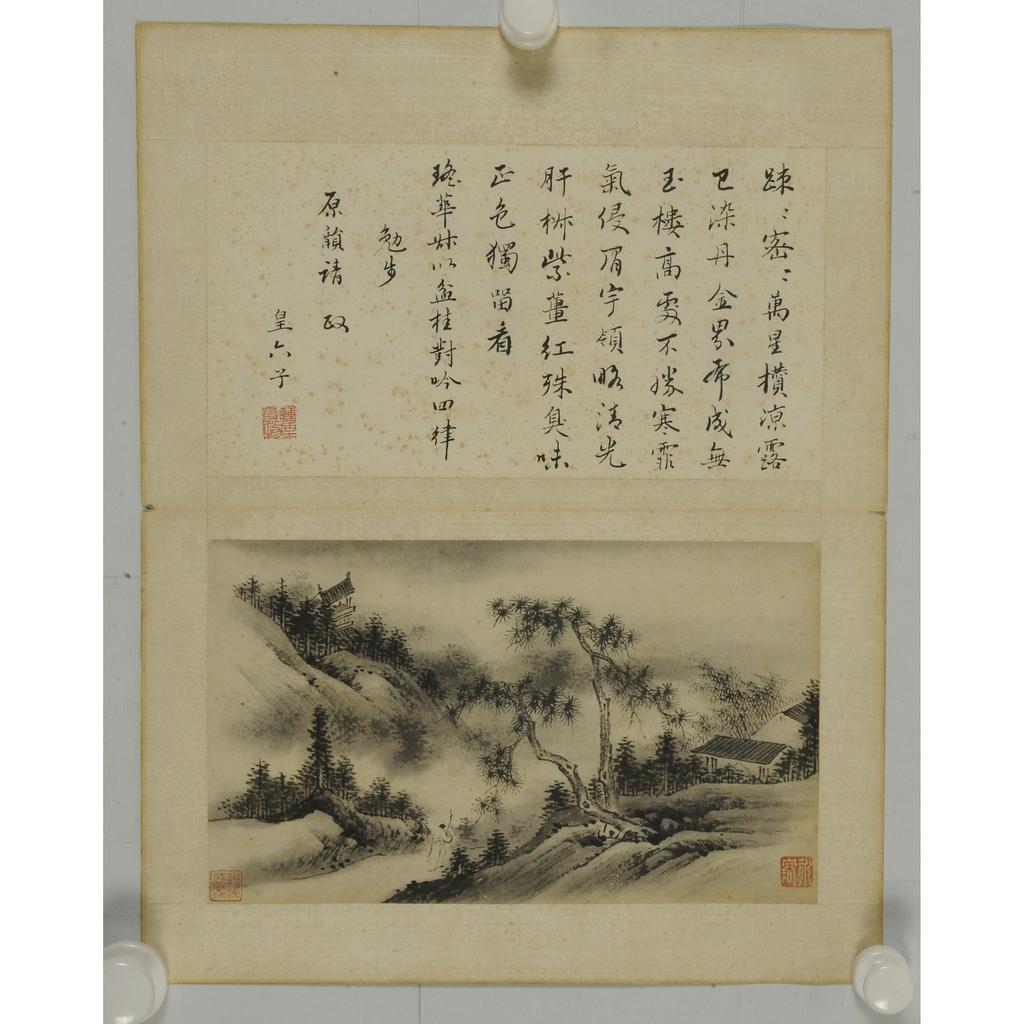 踈〻密〻萬星攢涼露
已染丹金粟布成無
玉樓高處不勝寒霏
氣侵眉宇領略清光
肝栁紫薑紅殊臭味
正色獨留看
瑤華妹以盆桂對吟四律
勉步
原韻請政
皇六子